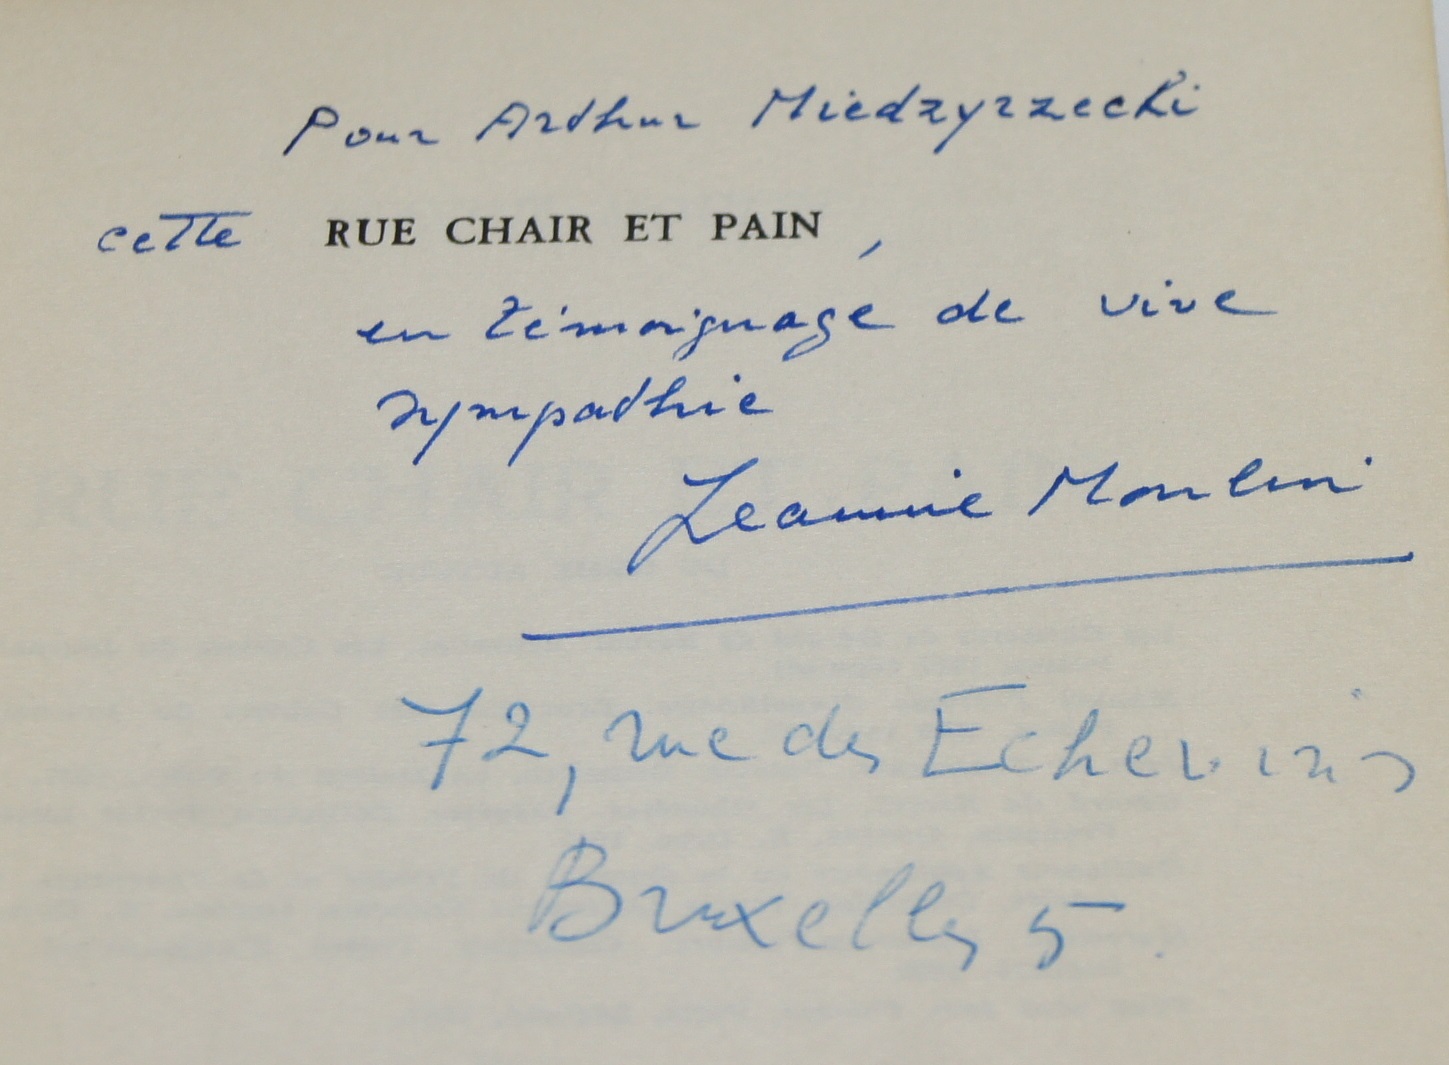 Pour Arthur Miedzyrzecki
cette RUE CHAIR ET PAIN,
en témoignage de vive
sympathie
Jeannine Moulin
72, rue des Echevins
Bruxelles 5.